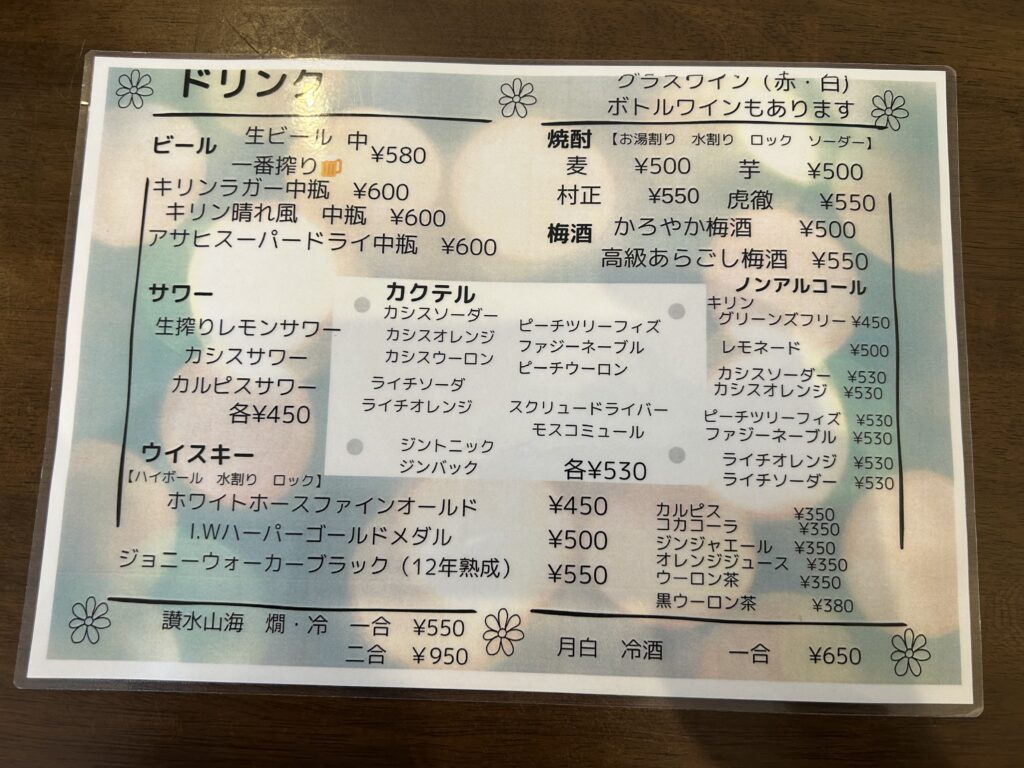 ドリンク
ビール 生ビール 中 ¥580
一番搾り🍺
キリンラガー中瓶 ¥600
キリン晴れ風 中瓶 ¥600
アサヒスーパードライ中瓶 ¥600
サワー
生搾りレモンサワー
カシスサワー
カルピスサワー
各¥450
グラスワイン(赤・白)
ボトルワインもあります
焼酎 【お湯割り 水割り ロック ソーダー】
麦 ¥500 芋 ¥500
村正 ¥550 虎徹 ¥550
梅酒 かろやか梅酒 ¥500
高級あらごし梅酒 ¥550
カクテル
カシスソーダー
カシスオレンジ
カシスウーロン
ライチソーダ
ライチオレンジ
ジントニック
ジンバック
ピーチツリーフィズ
ファジーネーブル
ピーチウーロン
スクリュードライバー
モスコミュール
各¥530
ノンアルコール
キリン
グリーンズフリー ¥450
レモネード ¥500
カシスソーダー ¥530
カシスオレンジ ¥530
ピーチツリーフィズ ¥530
ファジーネーブル ¥530
ライチオレンジ ¥530
ライチソーダー ¥530
ウイスキー
【ハイボール 水割り ロック】
ホワイトホースファインオールド ¥450
I.Wハーパーゴールドメダル ¥500
ジョニーウォーカーブラック(12年熟成) ¥550
カルピス ¥350
コカコーラ ¥350
ジンジャエール ¥350
オレンジジュース ¥350
ウーロン茶 ¥350
黒ウーロン茶 ¥380
讃水山海 燗・冷 一合 ¥550
二合 ¥950
月白 冷酒 一合 ¥650